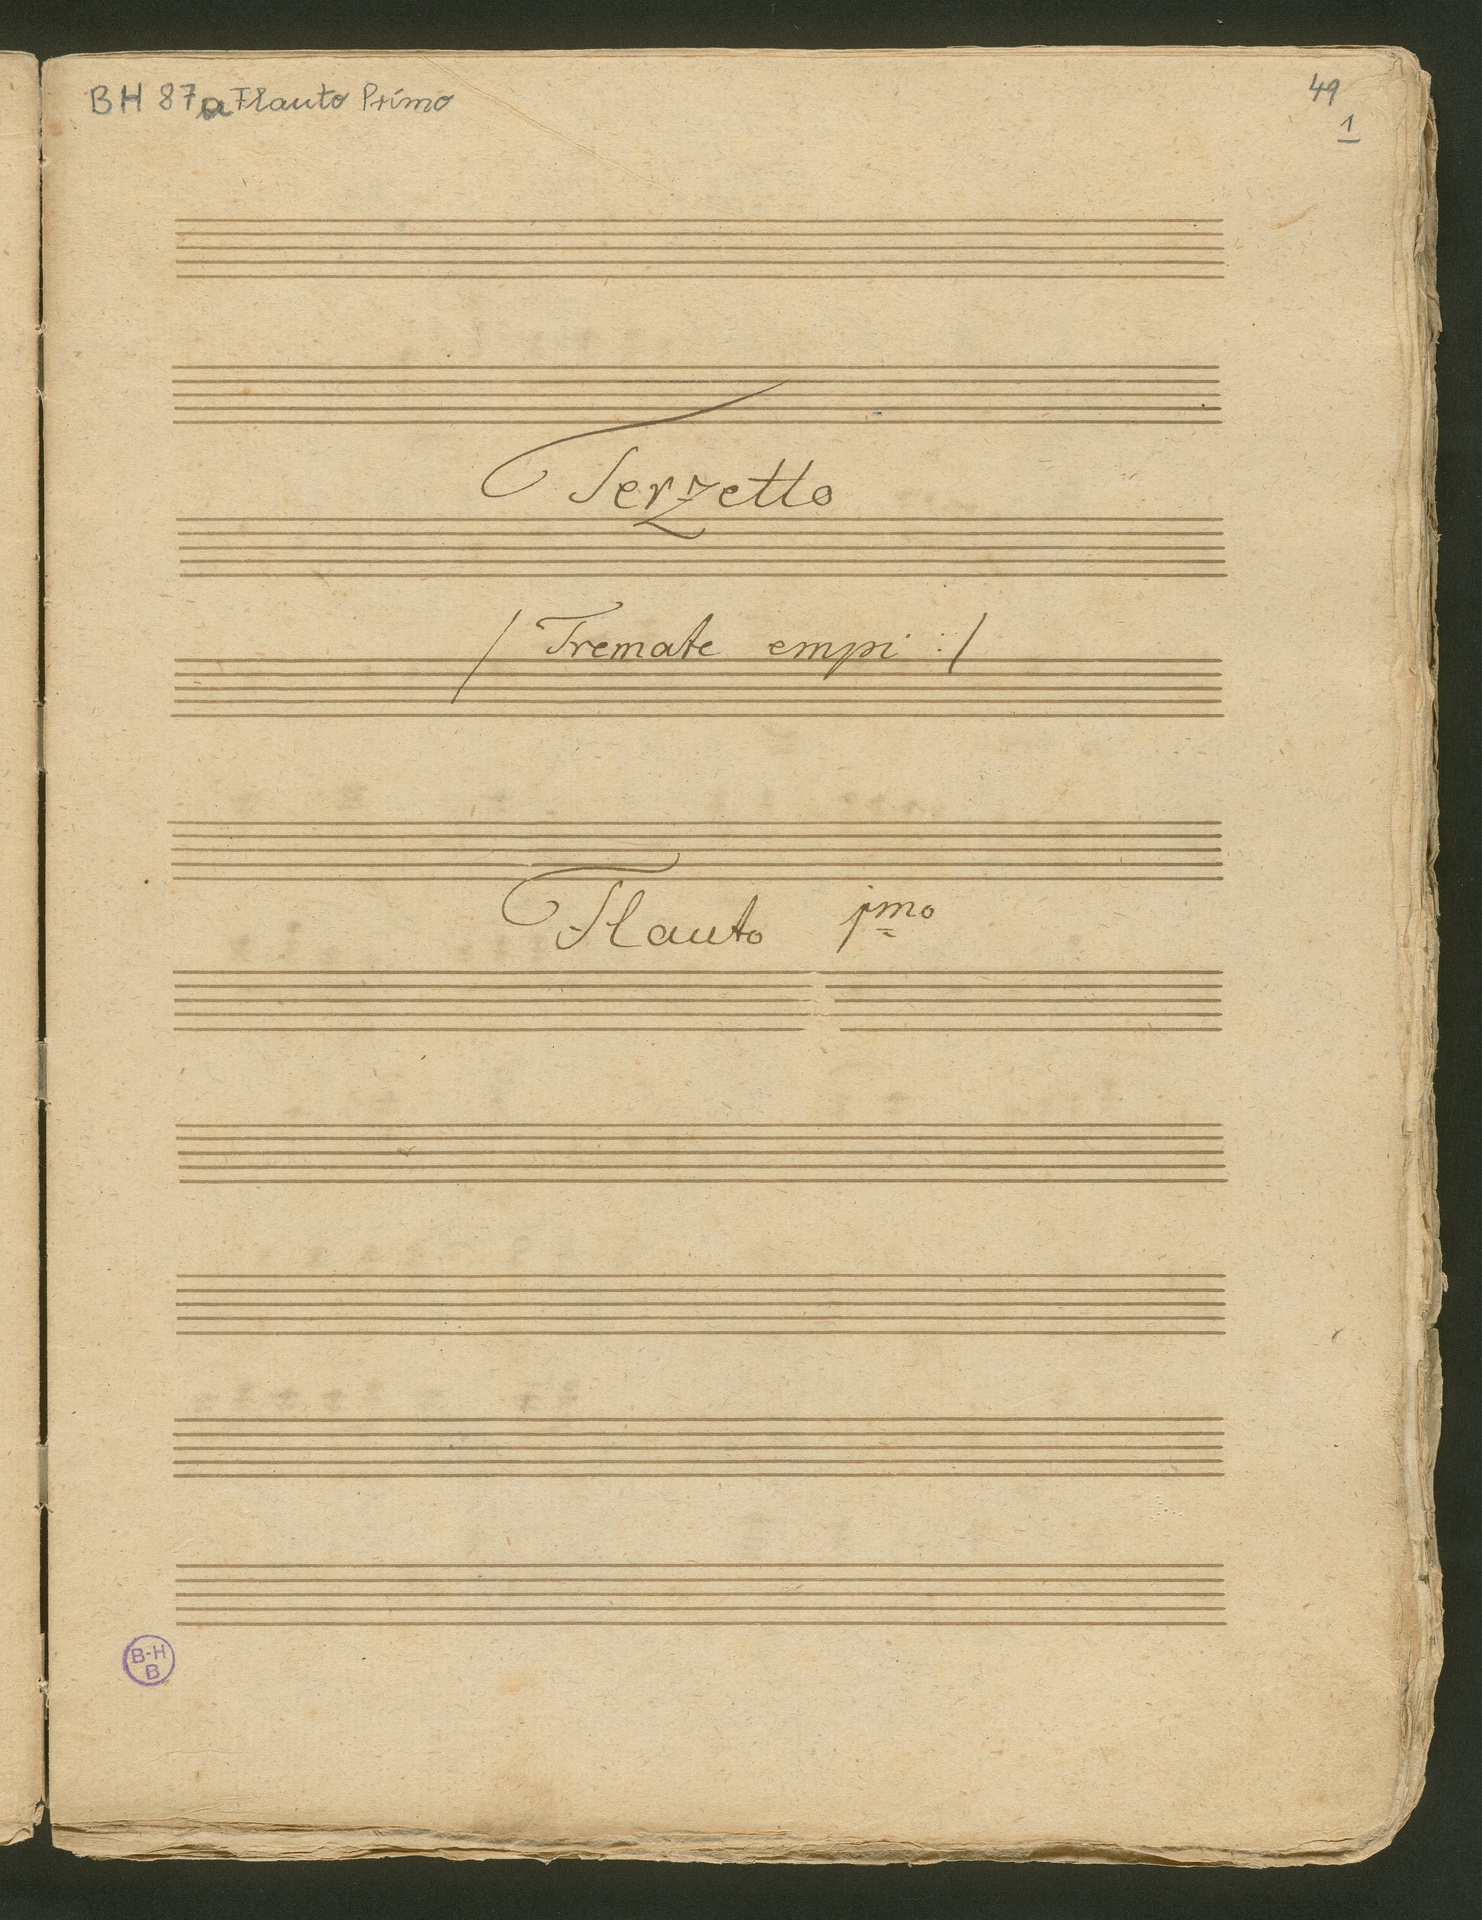 BH 87a Flauto Primo
49
1
Terzetto
/ Tremate empi :/
Flauto jmo
B-H
B